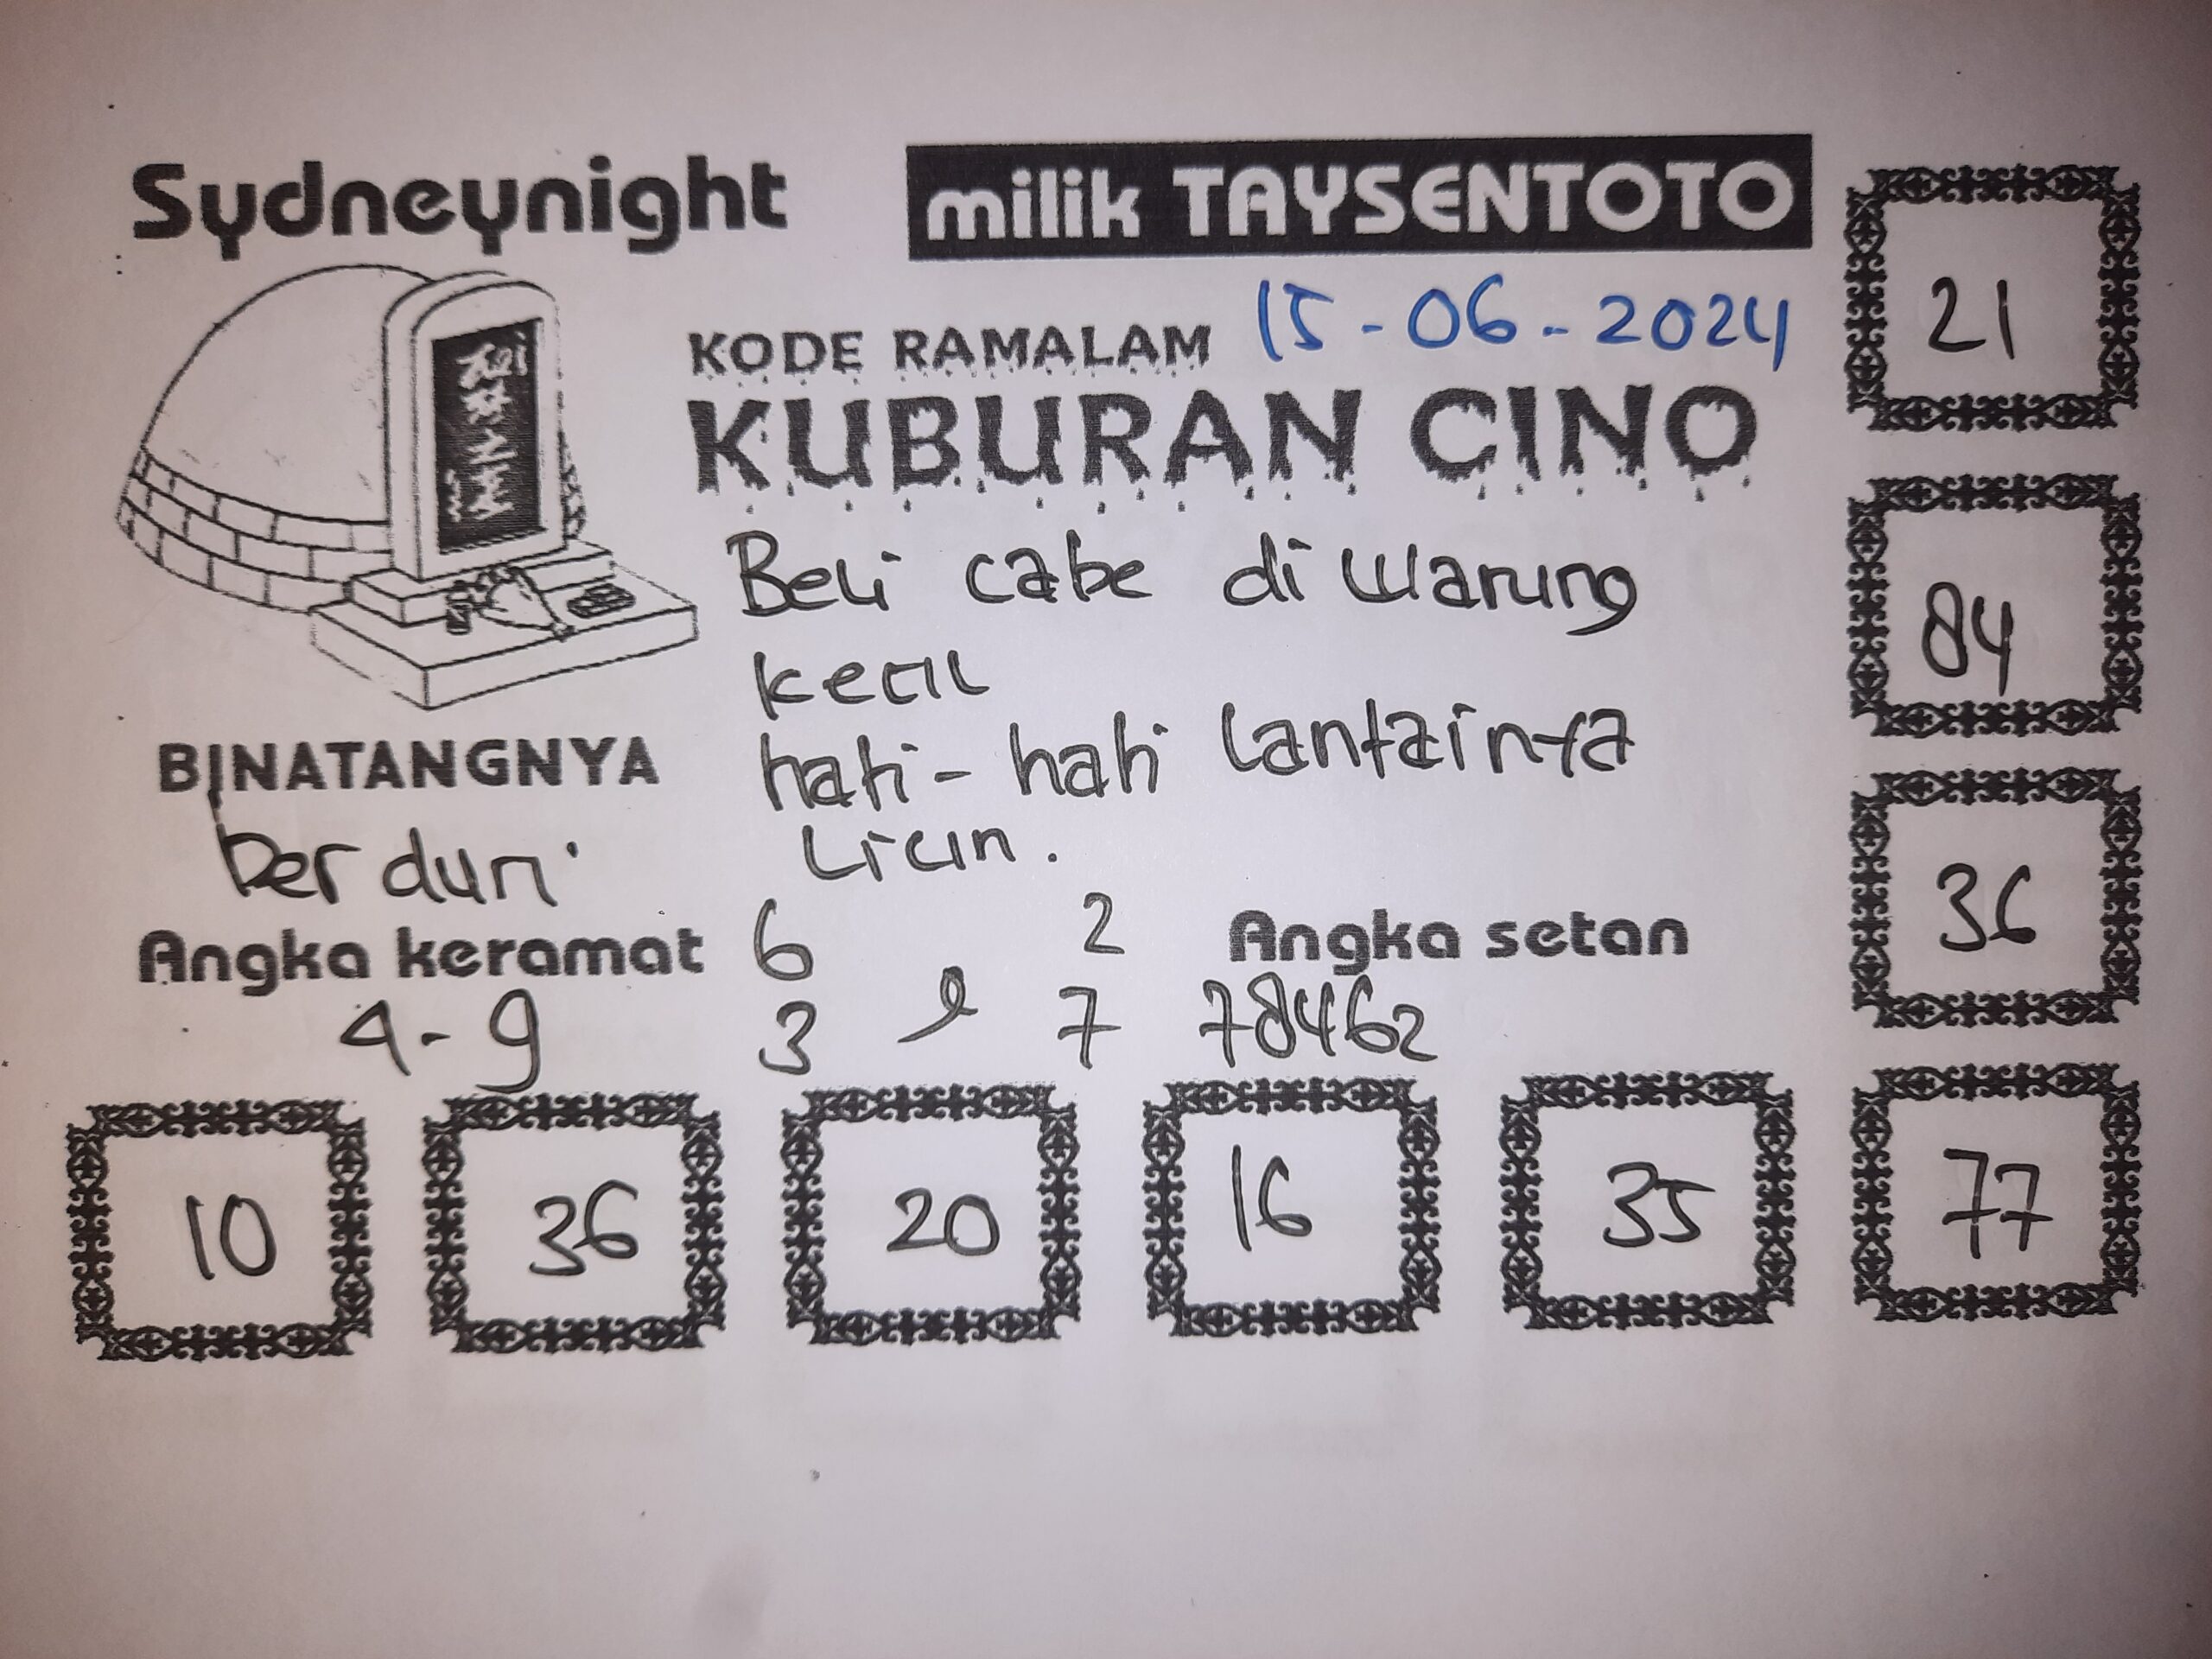 Sydneynight
milik TAYSENTOTO
KODE RAMALAM 15-06-2024
KUBURAN CINO
Beli cabe di warung
kecil
hati-hati lantainya
licin.
BINATANGNYA
Ber duri
Angka keramat
4-9
6 2
3 7
Angka setan
78462
21
84
36
77
10 36 20 16 35